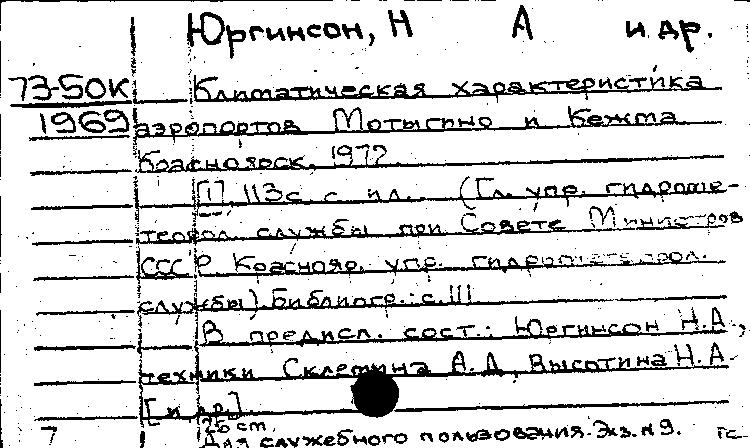 Юргинсон, Н А и др.
73-50К Климатическая характеристика
1969 аэропортов Мотыгино и Кежма.
Красноярск, 1972.
[1], 113с. с ил. (Гл. упр. гидроме-
теорол. службы при Совете Министров
СССР Краснояр. упр. гидрометеорол.
службы). Библиогр.: с. 111
В предисл. сост.: Юргинсон Н.А.,
техники Склемина А.Д., Высотина Н.А.
[и др.]
26 cm.
7 Для служебного пользования. Экз. №9.